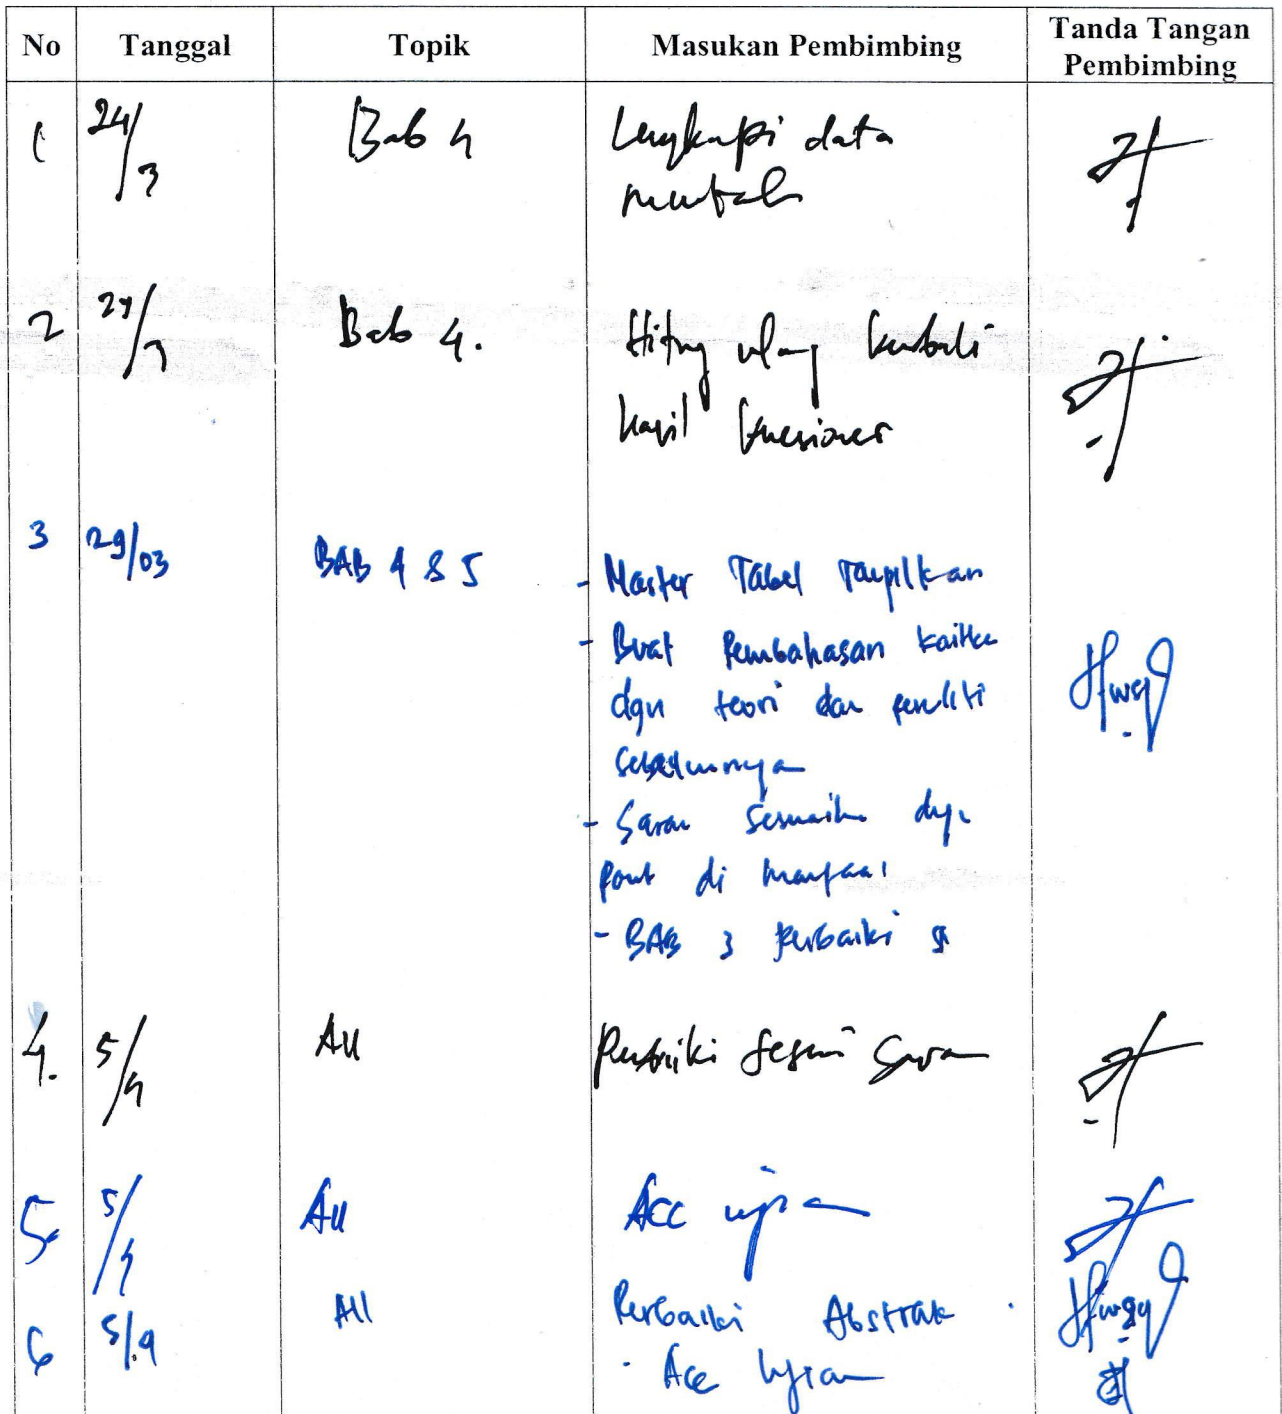 No Tanggal Topik Masukan Pembimbing Tanda Tangan Pembimbing
1 24/3 Bab 4 Lengkapi data
mentah
2 27/3 Bab 4. Hitung ulang kembali
hasil kuesioner
3 29/03 BAB 4 & 5 - Master Tabel Tampilkan
- Buat Pembahasan kaitkan
dgn teori dan peneliti
sebelumnya
- Saran sesuaikan dgn
point di manfaat
- BAB 3 perbaiki
4. 5/4 All Perbaiki sesuai saran
5. 5/4 All ACC ujian
6 5/4 All Perbaiki Abstrak
- Acc Ujian